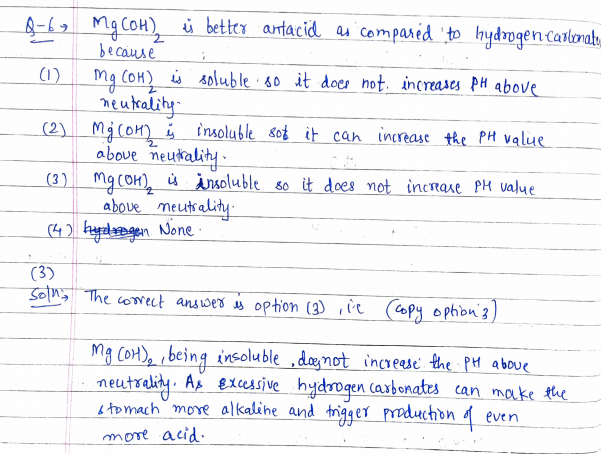 Q-6→ Mg(OH)₂ is better antacid as compared to hydrogen-carbonate
because
(1) Mg(OH)₂ is soluble so it does not increases PH above
neutrality.
(2) Mg(OH)₂ is insoluble so it can increase the PH value
above neutrality.
(3) Mg(OH)₂ is insoluble so it does not increase PH value
above neutrality.
(4) hydrogen None.
(3)
Soln:→ The correct answer is option (3), i.e (copy option 3)
Mg(OH)₂, being insoluble, doesnot increase the PH above
neutrality. As excessive hydrogencarbonates can make the
stomach more alkaline and trigger production of even
more acid.